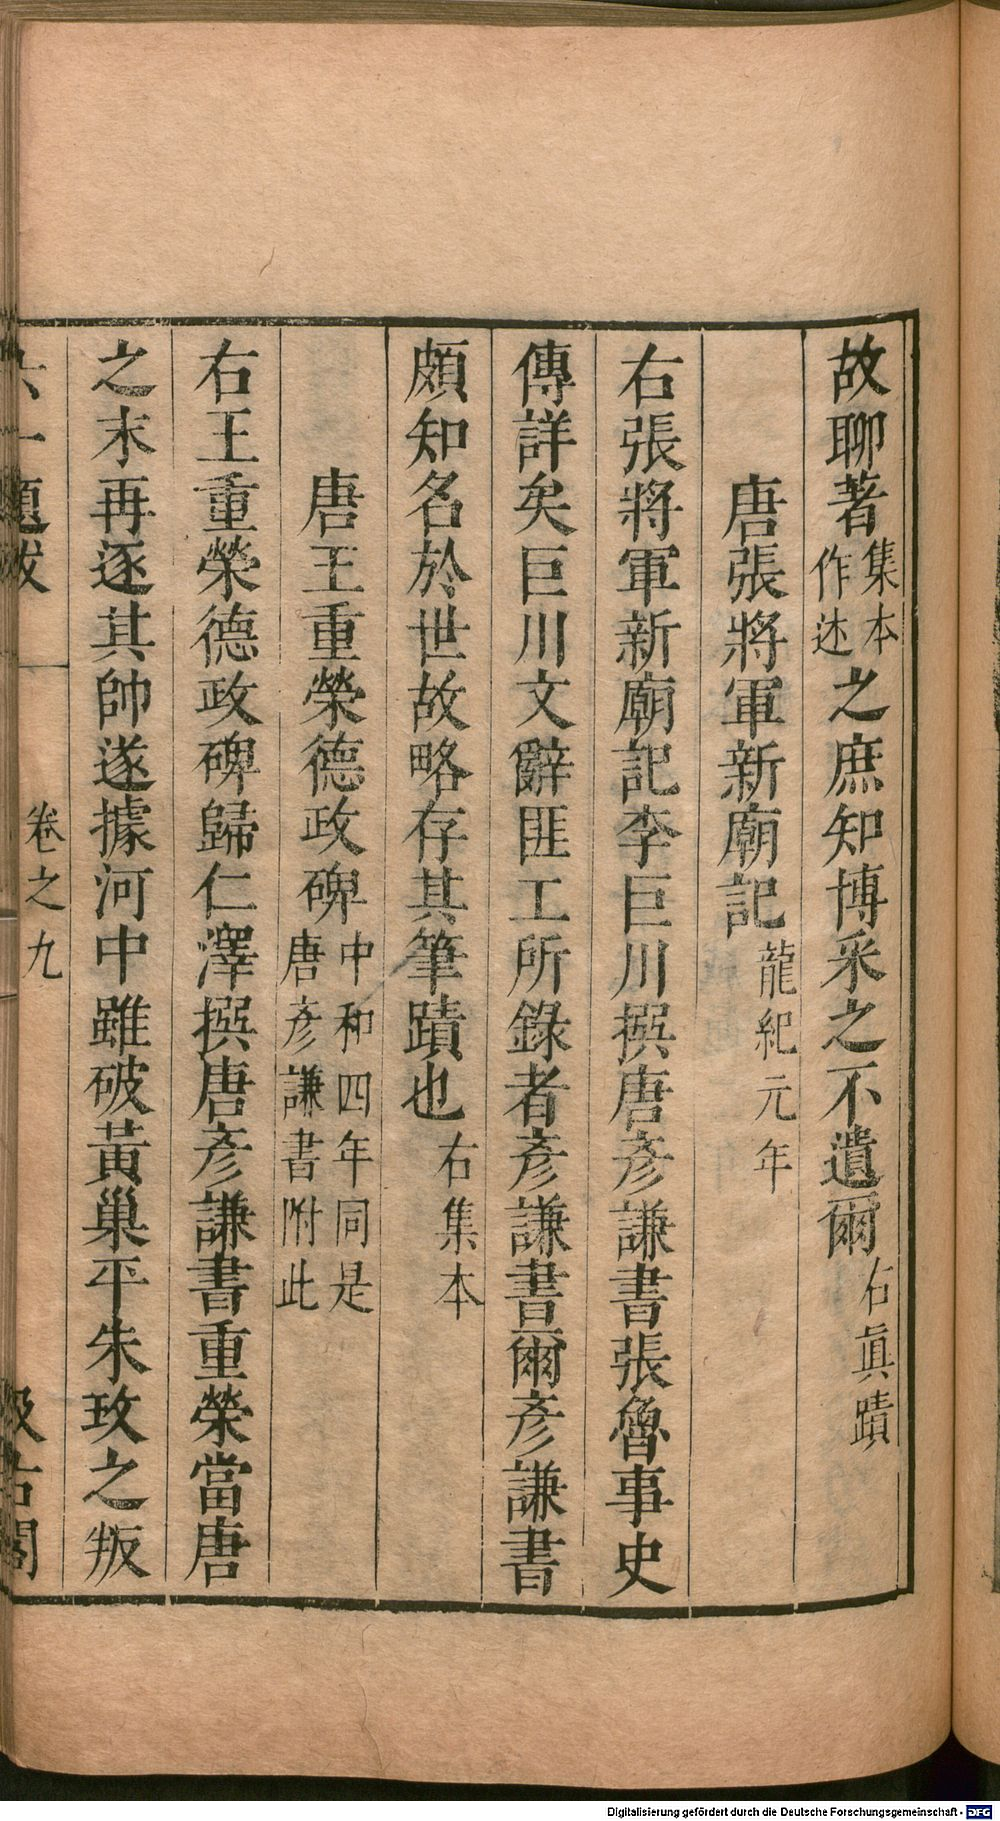 故聊著集本作述之庶知博采之不遺爾右眞蹟
唐張將軍新廟記龍紀元年
右張將軍新廟記李巨川撰唐彥謙書張魯事史
傳詳矣巨川文辭匪工所錄者彥謙書爾彥謙書
頗知名於世故略存其筆蹟也右集本
唐王重榮德政碑中和四年同是唐彥謙書附此
右王重榮德政碑歸仁澤撰唐彥謙書重榮當唐
之末再逐其帥遂據河中雖破黃巢平朱玫之叛
六一題跋 卷之九 汲古閣
Digitalisierung gefördert durch die Deutsche Forschungsgemeinschaft - DFG